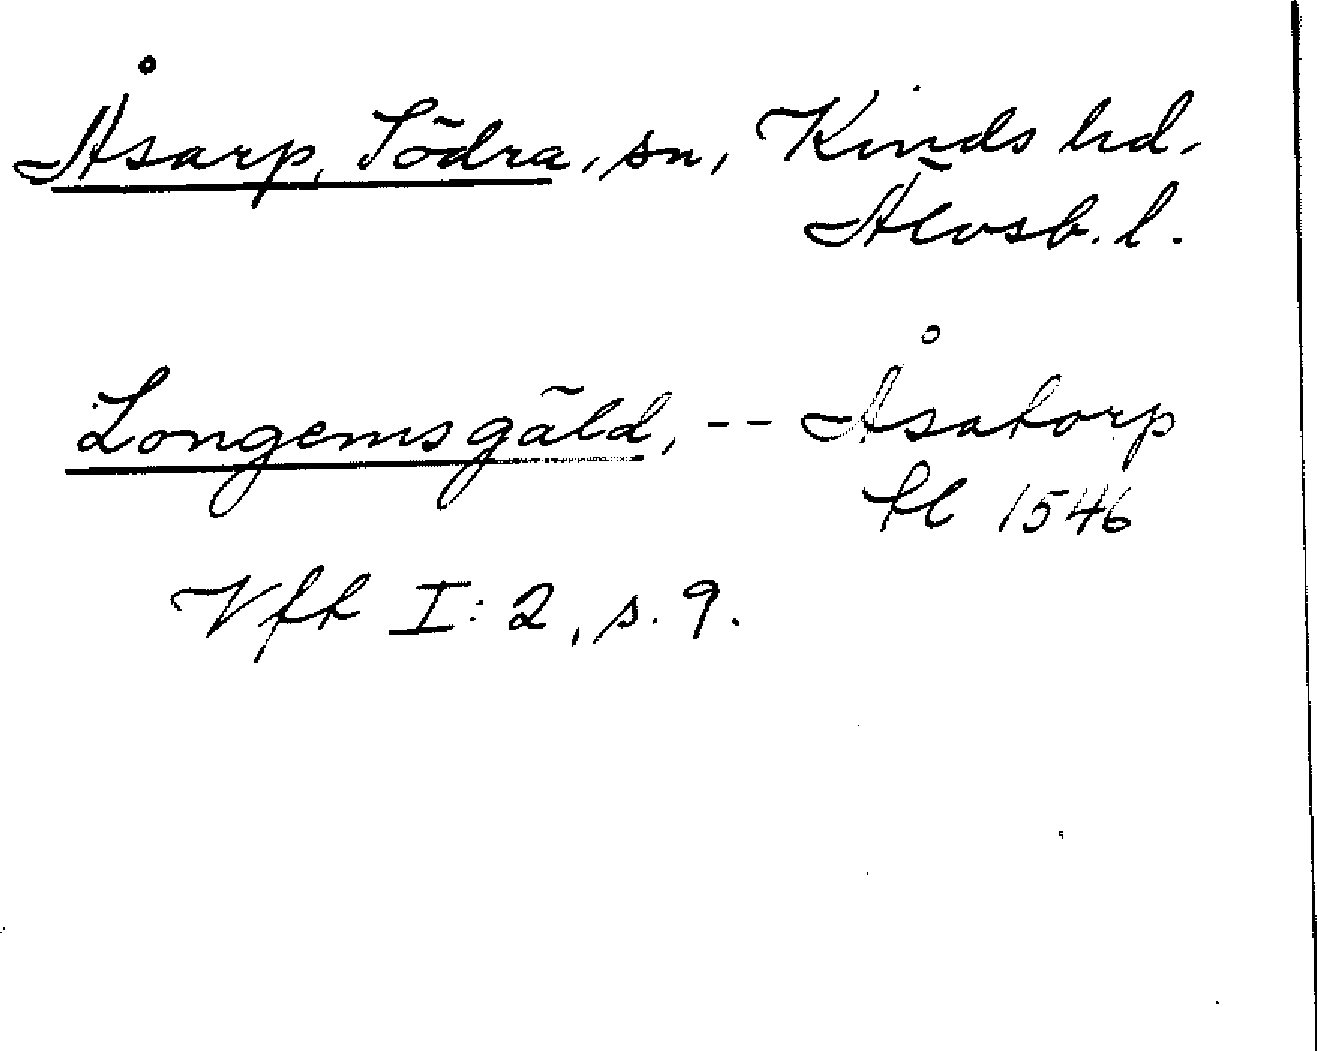 Åsarp, Södra, sn, Kinds hd.
Älvsb. l.
Longemsgäld, -- Åsatorp
tl 1546
Vft I: 2, s. 9.